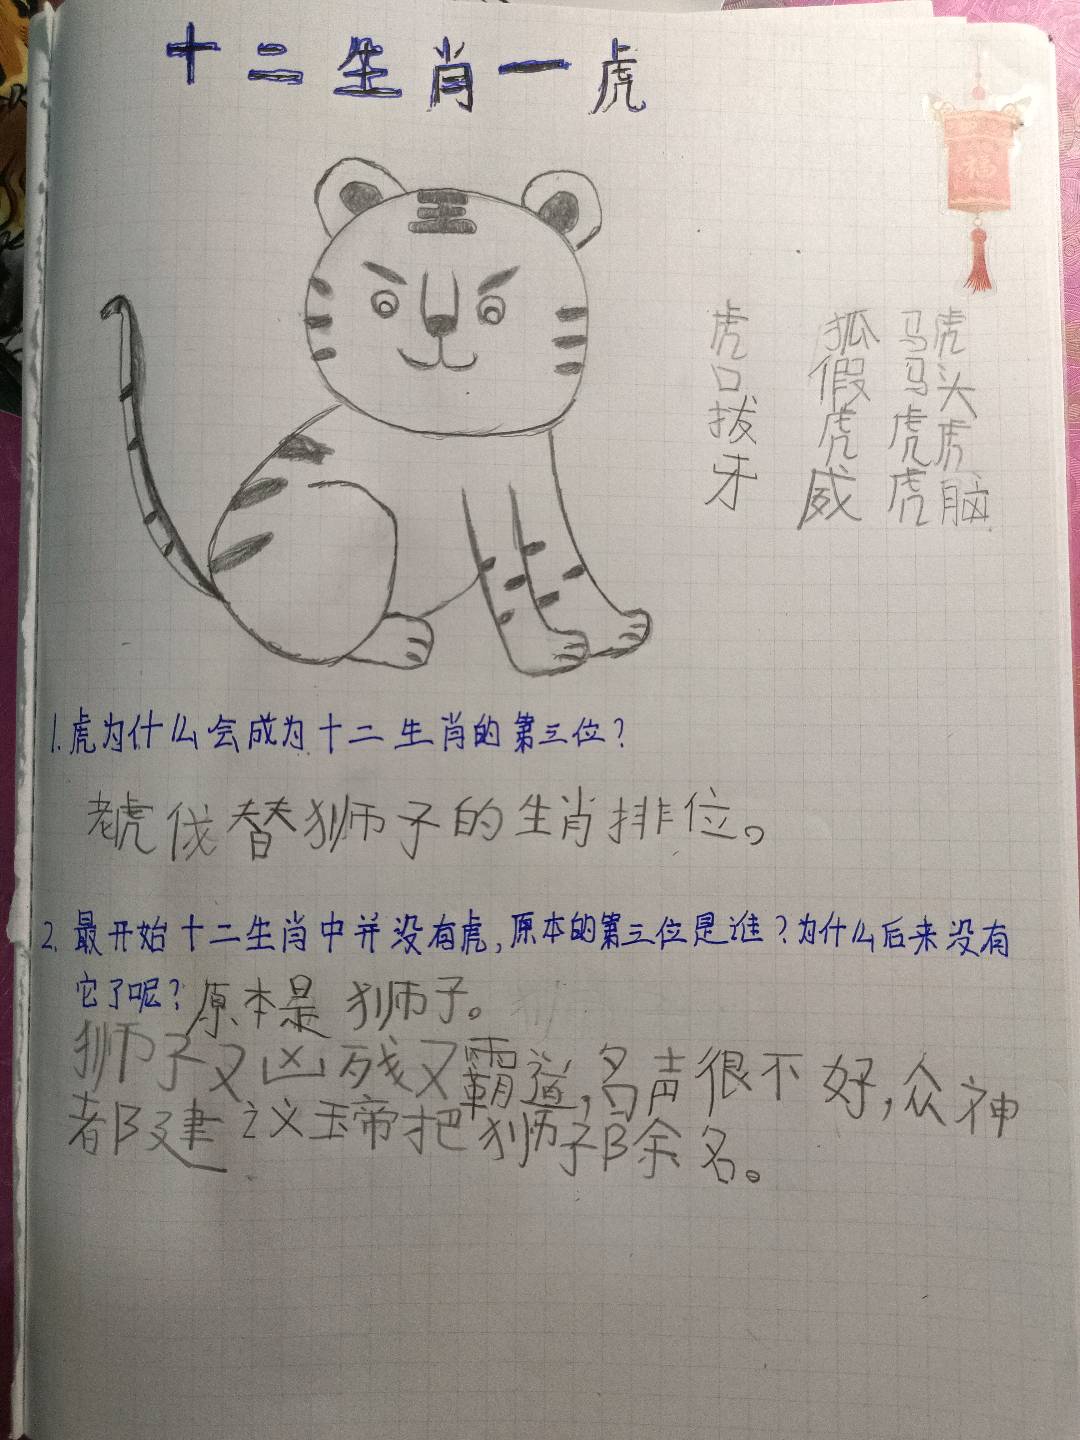 十二生肖一虎
福
王
虎口拔牙
狐假虎威
马马虎虎
虎头虎脑
1.虎为什么会成为十二生肖的第三位?
老虎伐替狮子的生肖排位。
2.最开始十二生肖中并没有虎,原本的第三位是谁?为什么后来没有
它了呢?原本是狮子。
狮子又凶残又霸道,名声很不好,众神
都建议玉帝把狮子除名。